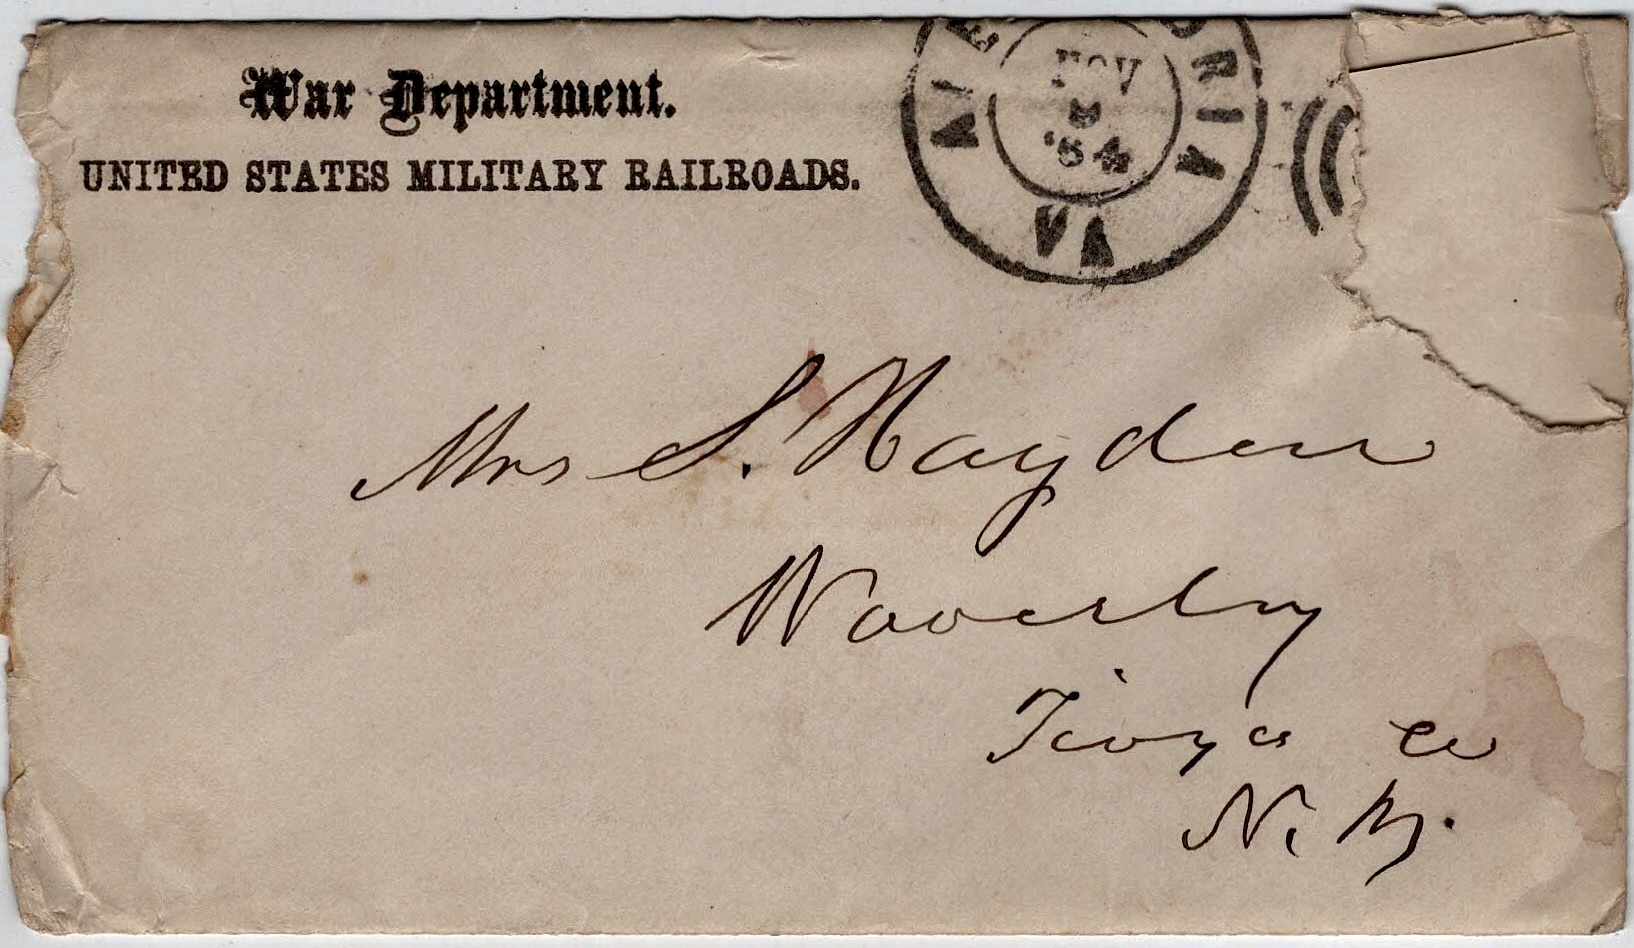 War Department.
UNITED STATES MILITARY RAILROADS.
NOV
'64
VA
Mrs S. Hayden
Waverly
Tioga Co
N. Y.